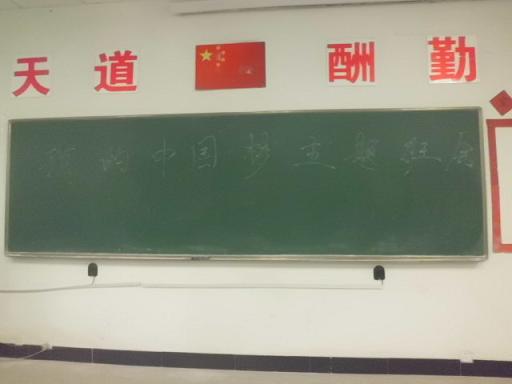 天道 酬勤
我的中国梦主题班会